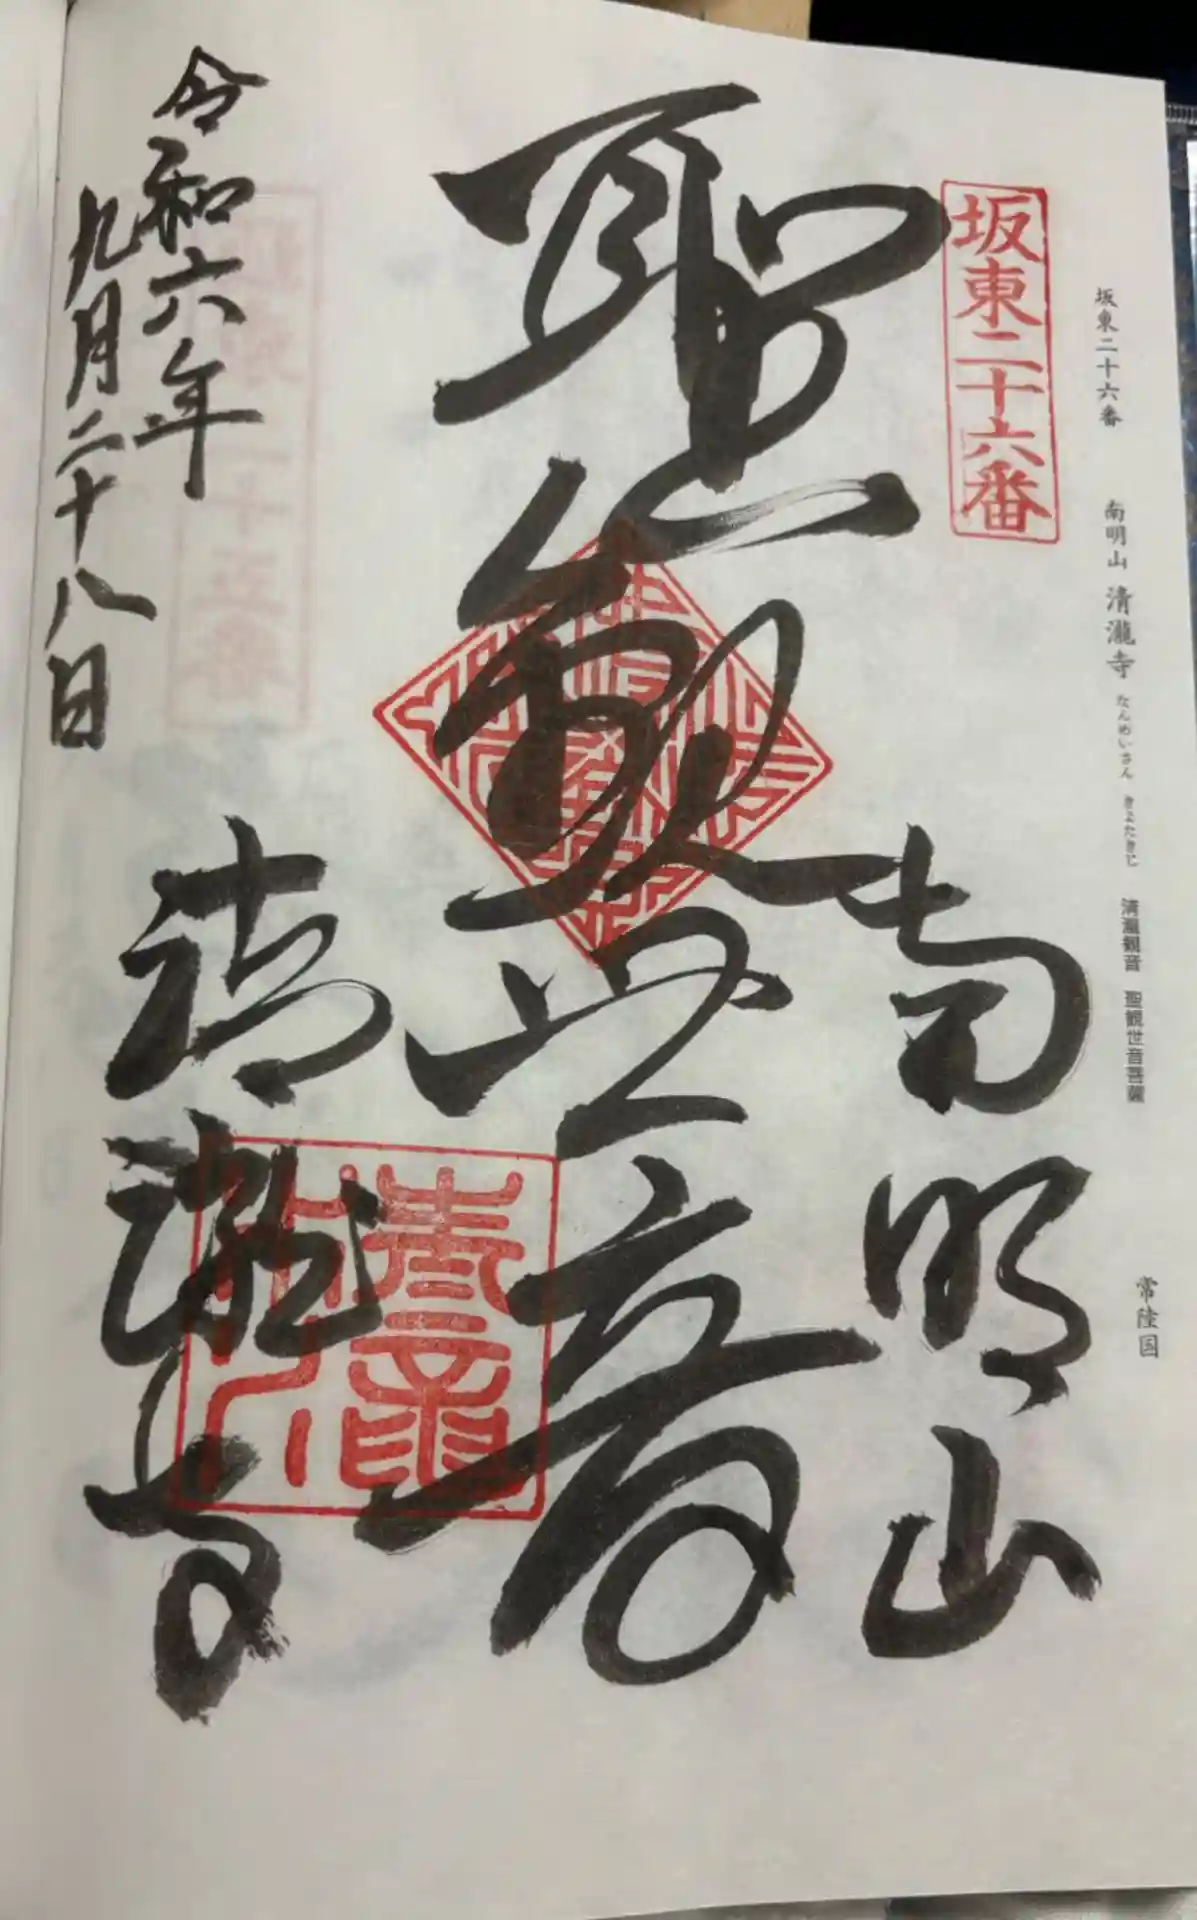 坂東二十六番 南明山 清瀧寺 なんめいさん きよたきじ 清瀧観音 聖観世音菩薩 常陸国
坂東二十六番
南明山
聖観世音
清瀧寺
令和六年
九月二十八日